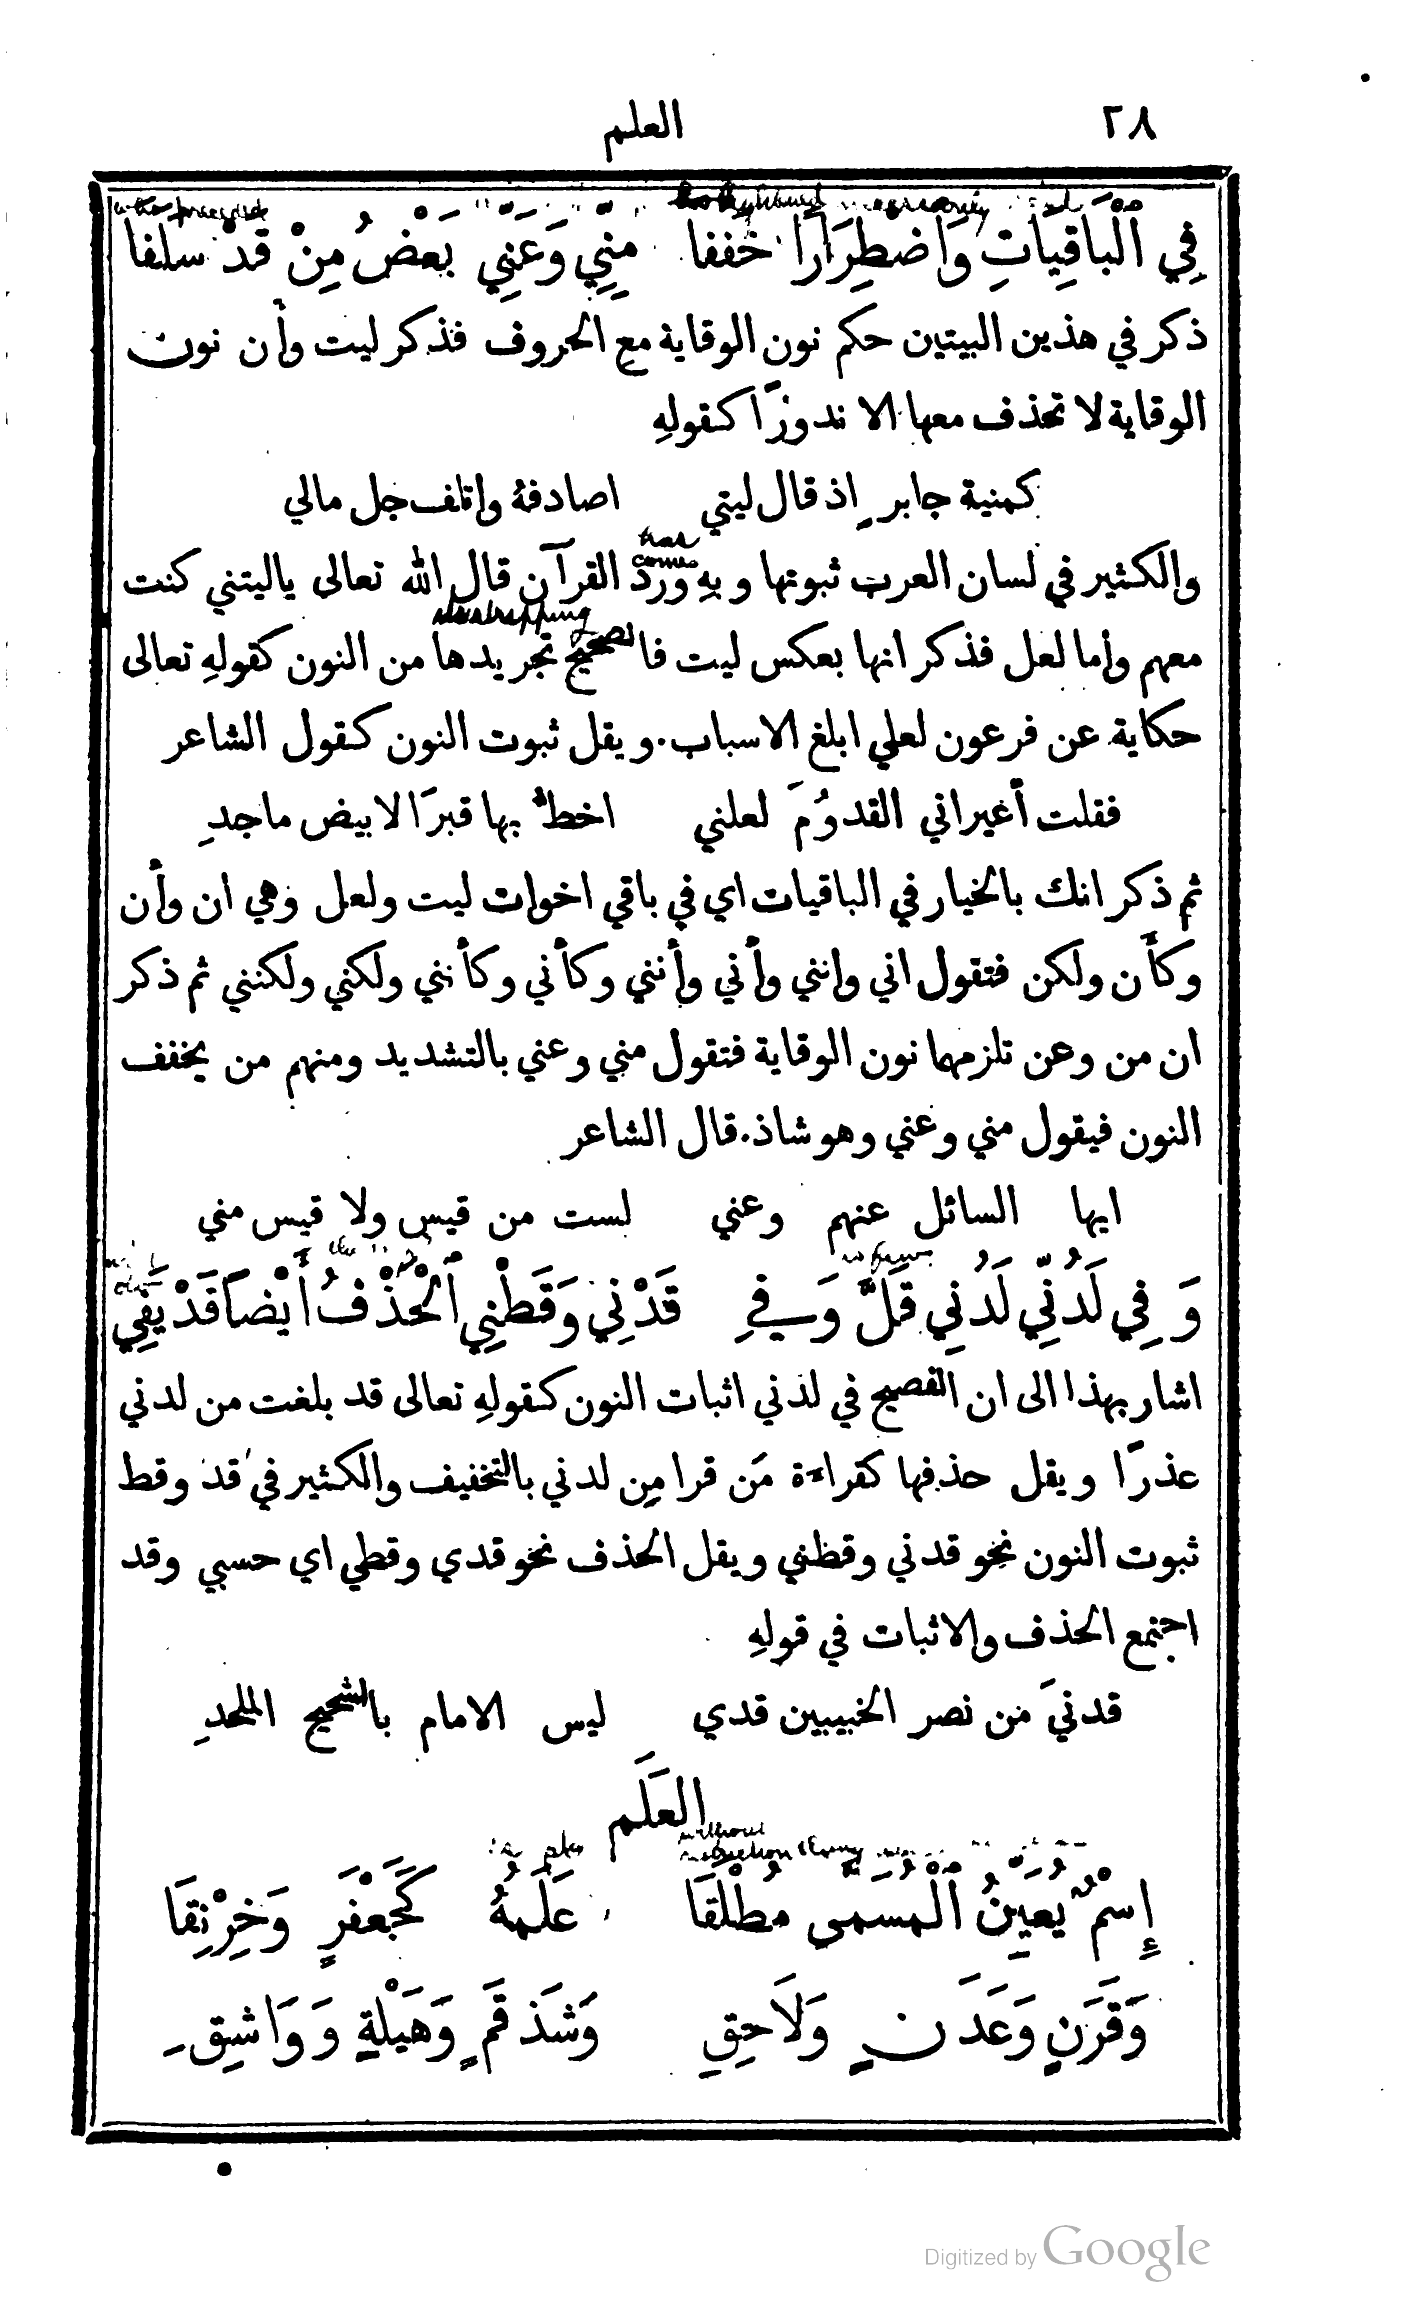 ٢٨ العلم
فِي ٱلْبَاقِيَاتِ وَٱضْطِرَارًا خَففا مِنِّي وَعَنِي بَعْضُ مِنْ قَدْ سلفا
ذكر في هذين البيتين حكم نون الوقاية مع الحروف فذكر ليت وأن نون
الوقاية لا تحذف معها الا ندورًا كقولهِ
كمنية جابرٍ اذ قال ليتي اصادفهُ واتلف جل مالي
has
comes
والكثير في لسان العرب ثبوتها وبهِ ورد القرآن قال الله تعالى ياليتني كنت
معهم واما لعل فذكر انها بعكس ليت فالصحيح تجريدها من النون كقولهِ تعالى
حكاية عن فرعون لعلي ابلغ الاسباب. ويقل ثبوت النون كقول الشاعر
فقلت أعيراني القدوُمَ لعلني اخطُّ بها قبرًا لابيض ماجدِ
ثم ذكر انك بالخيار في الباقيات اي في باقي اخوات ليت ولعل وهي ان وأن
وكأن ولكن فتقول اني وانني وأني وأنني وكأني وكأنني ولكني ولكنني ثم ذكر
ان من وعن تلزمهما نون الوقاية فتقول مني وعني بالتشديد ومنهم من يخفف
النون فيقول مني وعني وهو شاذ. قال الشاعر
ايها السائل عنهم وعني لست من قيس ولا قيس مني
وَفِي لَدُنِّي لَدُنِي قَلَّ وَفِي قَدْنِي وَقَطْنِي ٱلْحَذْفُ أَيْضًا قَدْ يَفِي
اشار بهذا الى ان الفصيح في لدني اثبات النون كقولهِ تعالى قد بلغت من لدني
عذرًا ويقل حذفها كقراءة مَن قرا مِن لدني بالتخفيف والكثير في قد وقط
ثبوت النون نحو قدني وقطني ويقل الحذف نحو قدي وقطي اي حسبي وقد
اجتمع الحذف والاثبات في قولهِ
قدنيَ من نصر الخبيبين قدي ليس الامام بالشحيح الملحدِ
العَلَم
without
إِسْمٌ يُعَيِّنُ ٱلْمُسَمَّى مُطْلَقَا عَلَمُهُ كَجَعْفَرٍ وَخِرْنِقَا
وَقَرَنٍ وَعَدَنٍ وَلَاحِقِ وَشَذْقَمٍ وَهَيْلَةٍ وَوَاشِقِ
Digitized by Google